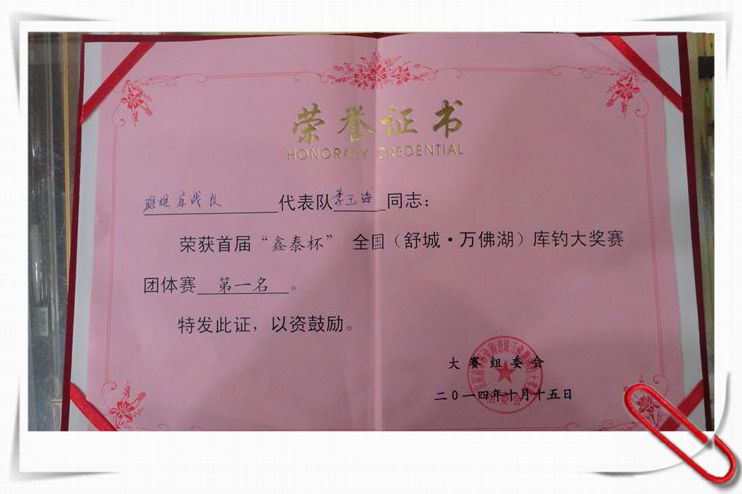 荣誉证书
HONORARY CREDENTIAL
库战队代表队李玉海同志：
荣获首届“鑫泰杯” 全国（舒城·万佛湖）库钓大奖赛
团体赛 第一名 。
特发此证，以资鼓励。
大赛组委会
二〇一四年十月十五日